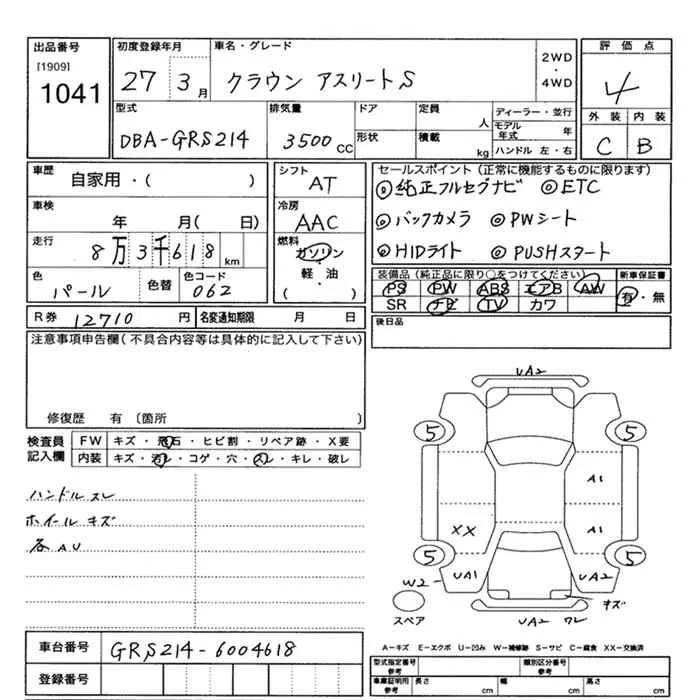 出品番号
[1909]
1041
初度登録年月
27 3 月
車名・グレード
クラウン アスリートS
2WD
・
4WD
評価点
4
外装 内装
C B
型式
DBA-GRS214
排気量
3500 CC
ドア
形状
定員
人
積載
kg
ディーラー・並行
モデル年式 年
ハンドル 左・右
車歴
自家用・( )
車検
年 月( 日)
走行
8万3千618 km
色
パール
色替
色コード
062
シフト
AT
冷房
AAC
燃料
ガソリン
・
軽・油
( )
セールスポイント(正常に機能するものに限ります)
◎純正フルセグナビ ◎ETC
◎バックカメラ ◎PWシート
◎HIDライト ◎PUSHスタート
装備品(純正品に限り○をつけてください)
PS PW ABS エアB AW
SR ナビ TV カワ
新車保証書
有・無
R券 12710 円
名変通知期限 月 日
後日品
注意事項申告欄(不具合内容等は具体的に記入して下さい)
修復歴 有〔箇所 〕
検査員
記入欄
FW キズ・飛石・ヒビ割・リペア跡・X要
内装 キズ・汚レ・コゲ・穴・スレ・キレ・破レ
ハンドル スレ
ホイール キズ
各AU
UA2
5 5
A1
XX A1
5 5
W2 UA1 UA2
キズ
スペア
UA2 ワレ
車台番号 GRS214-6004618
登録番号
A-キズ E-エクボ U-凹み W-補修跡 S-サビ C-腐食 XX-交換済
型式指定番号
参考
類別区分番号
参考
車庫証明用
参考
長さ cm
幅 cm
高さ cm